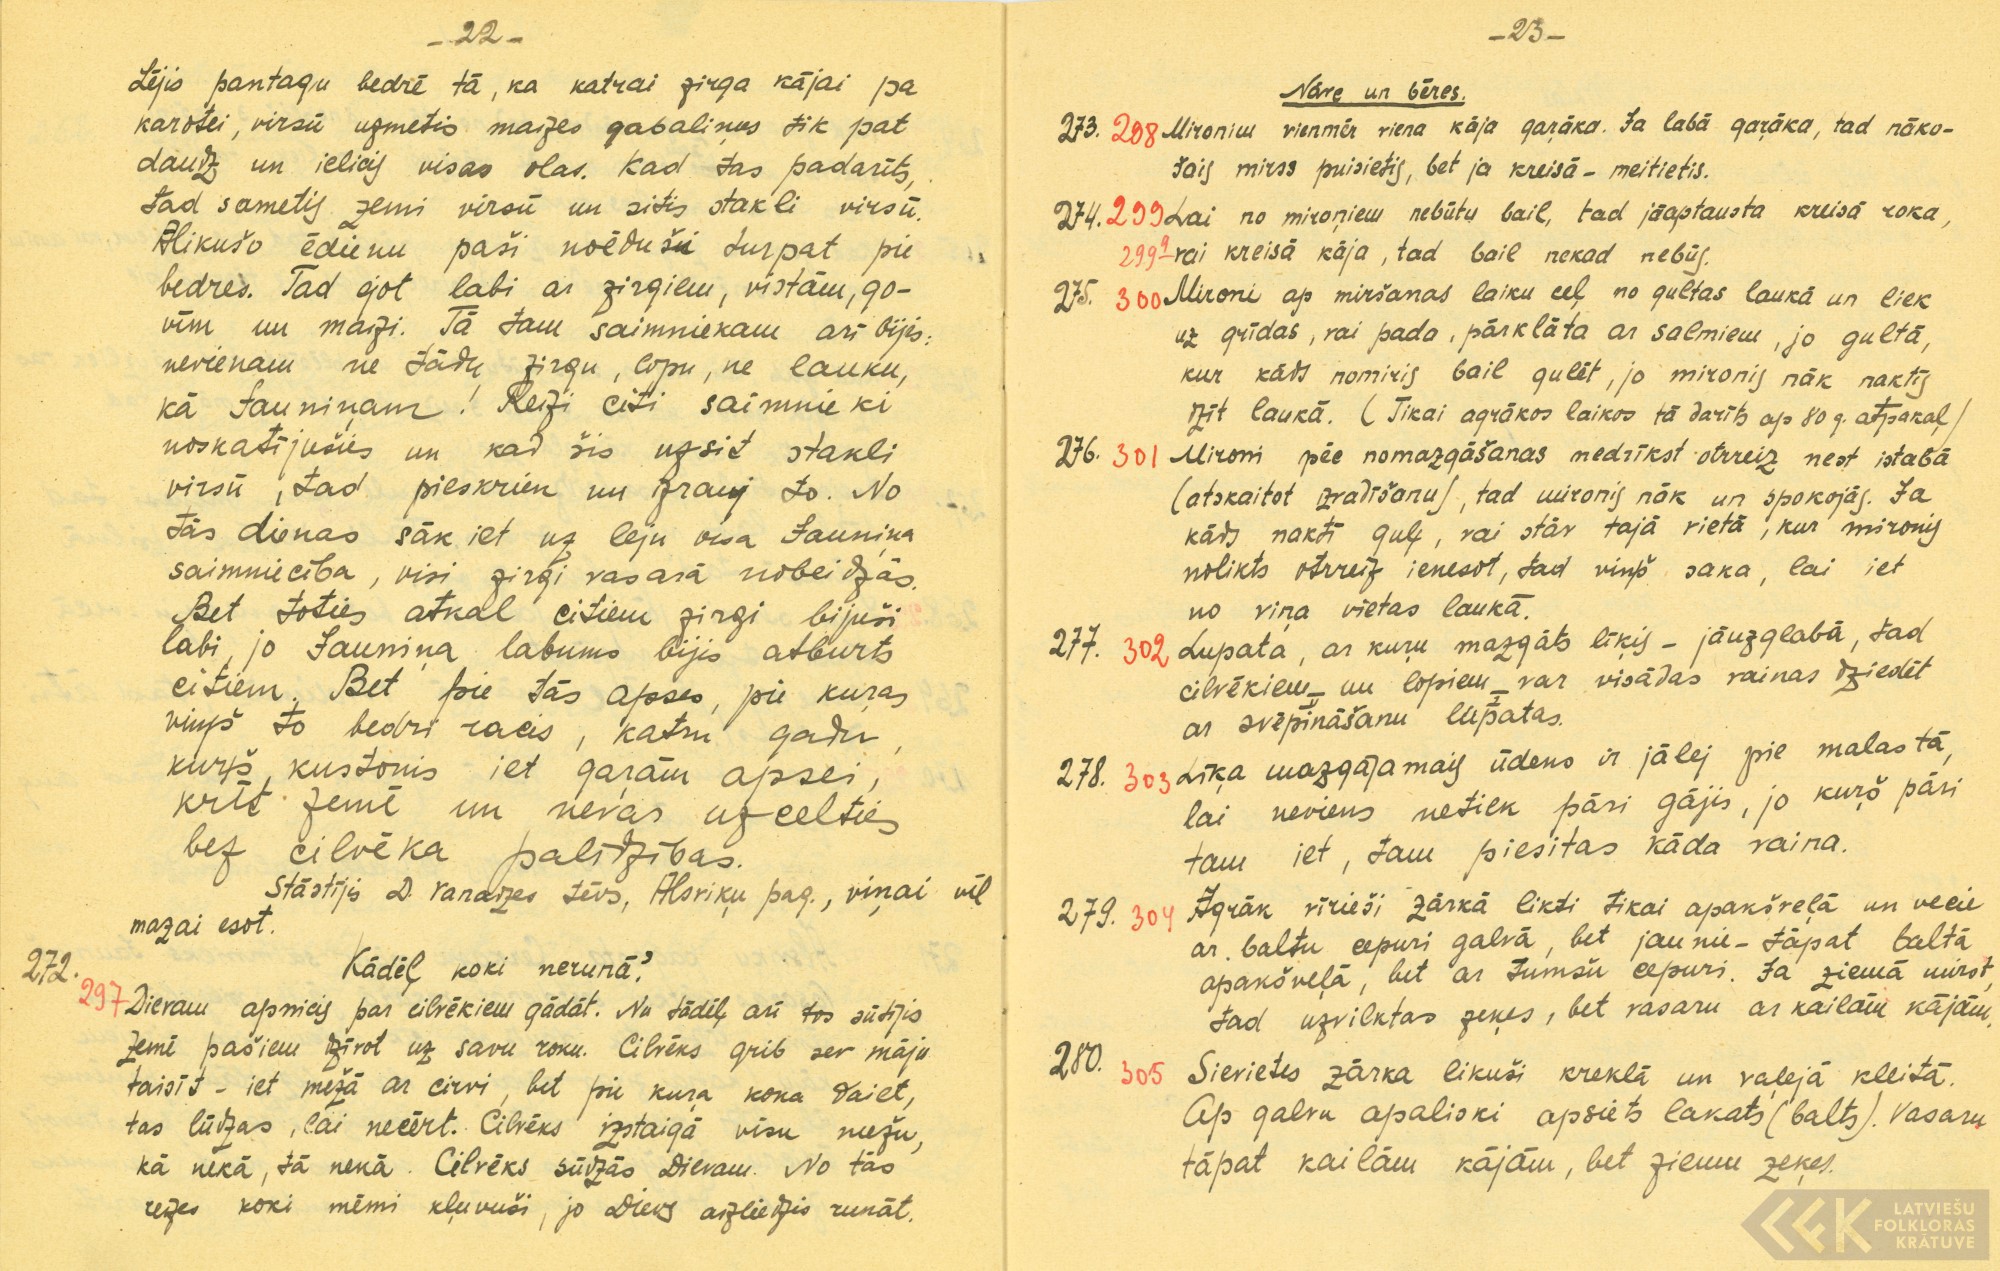 -22-
Lējis pantagu bedrē tā, ka katrai zirga kājai pa
karotei, virsū uzmetis maizes gabaliņus tik pat
daudz un ielicis visas olas. Kad tas padarīts,
tad sametis zemi virsū un sitis stakli virsū.
Atlikušo ēdienu paši noēduši turpat pie
bedres. Tad ejot labi ar zirgiem, vistām, go-
vīm un maizi. Tā tam saimniekam arī bijis:
nevienam ne tādu zirgu, lopu, ne lauku,
kā Jauniņam! Reizi citi saimnieki
noskatījušies un kad šis uzsit stakli
virsū, tad pieskrien un izrauj to. No
tās dienas sāk iet uz leju visa Jauniņa
saimniecība, visi zirgi vasarā nobeidzās.
Bet toties atkal citiem zirgi bijuši
labi, jo Jauniņa labums bijis atburts
citiem. Bet pie tās apses, pie kuŗas
viņš to bedri racis, katru gadu,
kuŗš kustonis iet gaŗām apsei,
krīt zemē un nevar uzcelties
bez cilvēka palīdzības.
Stāstījis D. Vanadzes tēvs, Alsviķu pag., viņai vēl
mazai esot.
272. Kādēļ koki nerunā?
297 Dievam apnicis par cilvēkiem gādāt. Nu tādēļ arī tos sūtījis
Zemē pašiem dzīvot uz savu roku. Cilvēks grib sev māju
taisīt - iet mežā ar cirvi, bet pie kuŗa koka daiet,
tas lūdzas, lai necērt. Cilvēks izstaigā visu mežu,
kā nekā, tā nekā. Cilvēks sūdzās Dievam. No tās
reizes koki mēmi kļuvuši, jo Dievs aizliedzis runāt.
-23-
Nāve un bēres.
273. 298 Mironim vienmēr viena kāja gaŗāka. Ja labā gaŗāka, tad nāko-
šais mirs puisietis, bet ja kreisā - meitietis.
274. 299 Lai no mironiem nebūtu bail, tad jāaptausta kreisā roka,
299ª vai kreisā kāja, tad bail nekad nebūs.
275. 300 Mironi ap miršanas laiku ceļ no gultas laukā un liek
uz grīdas, vai pada, pārklāta ar salmiem, jo gultā,
kur kāds nomiris bail gulēt, jo mironis nāk naktīs
dzīt laukā. (Tikai agrākos laikos tā darīts ap 80 g. atpakaļ)
276. 301 Mironi pēc nomazgāšanas nedrīkst otrreiz nest istabā
(atskaitot izvadīšanu), tad mironis nāk un spokojās. Ja
kāds naktī guļ, vai stāv tajā vietā, kur mironis
nolikts otrreiz ienesot, tad viņš saka, lai iet
no viņa vietas laukā.
277. 302 Lupata, ar kuŗu mazgāts līķis - jāuzglabā, tad
cilvēkiem un lopiem var visādas vainas dziedēt
ar svēpināšanu lupatas.
278. 303 Līķa mazgājamais ūdens ir jālej pie malas tā,
lai neviens netiek pāri gājis, jo kuŗš pāri
tam iet, tam piesitas kāda vaina.
279. 304 Agrāk vīrieši zārkā likti tikai apakšveļā un vecie
ar baltu cepuri galvā, bet jaunie - tāpat baltā
apakšveļā, bet ar tumšu cepuri. Ja ziemā mirst,
tad uzvilktas zeķes, bet vasaru ar kailām kājām.
280. 305 Sievietes zārkā likuši kreklā un vaļejā kleitā.
Ap galvu apaliski apsiets lakats (balts). Vasaru
tāpat kailām kājām, bet ziemu zeķes.
LATVIEŠU
FOLKLORAS
KRĀTUVE